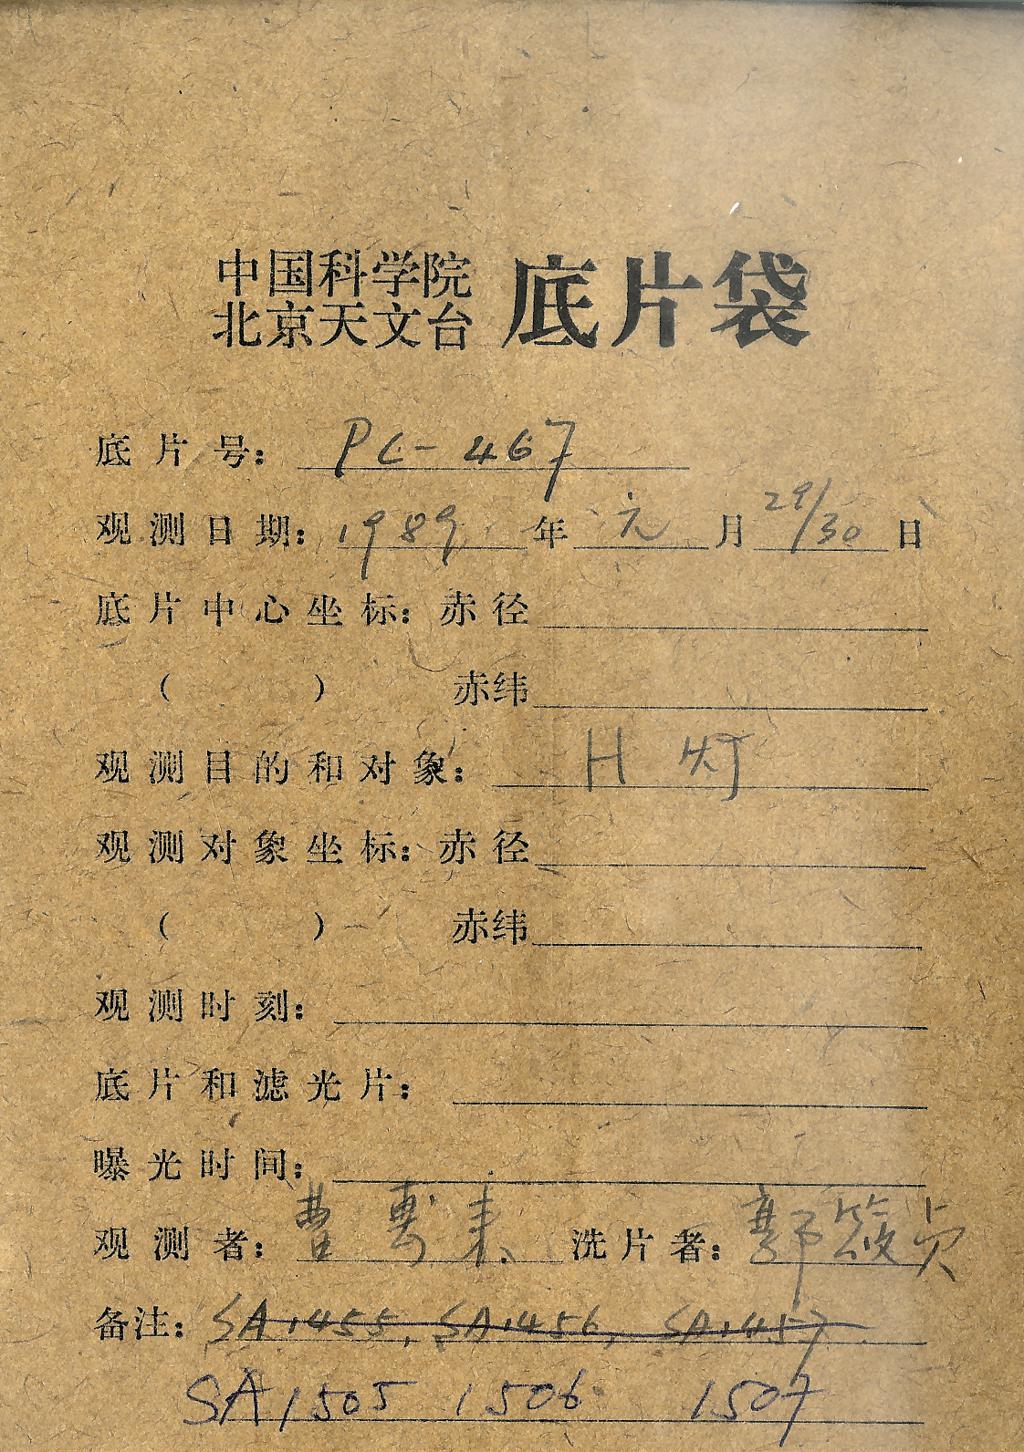 中国科学院
北京天文台 底片袋
底片号: PC-467
观测日期: 1989 年 元 月 29/30 日
底片中心坐标: 赤径
( ) 赤纬
观测目的和对象: H 灯
观测对象坐标: 赤径
( ) 赤纬
观测时刻:
底片和滤光片:
曝光时间:
观测者: 曹 洗片者: 郭 贞
备注: SA1455, SA1456, SA1457
SA1505 1506 1507